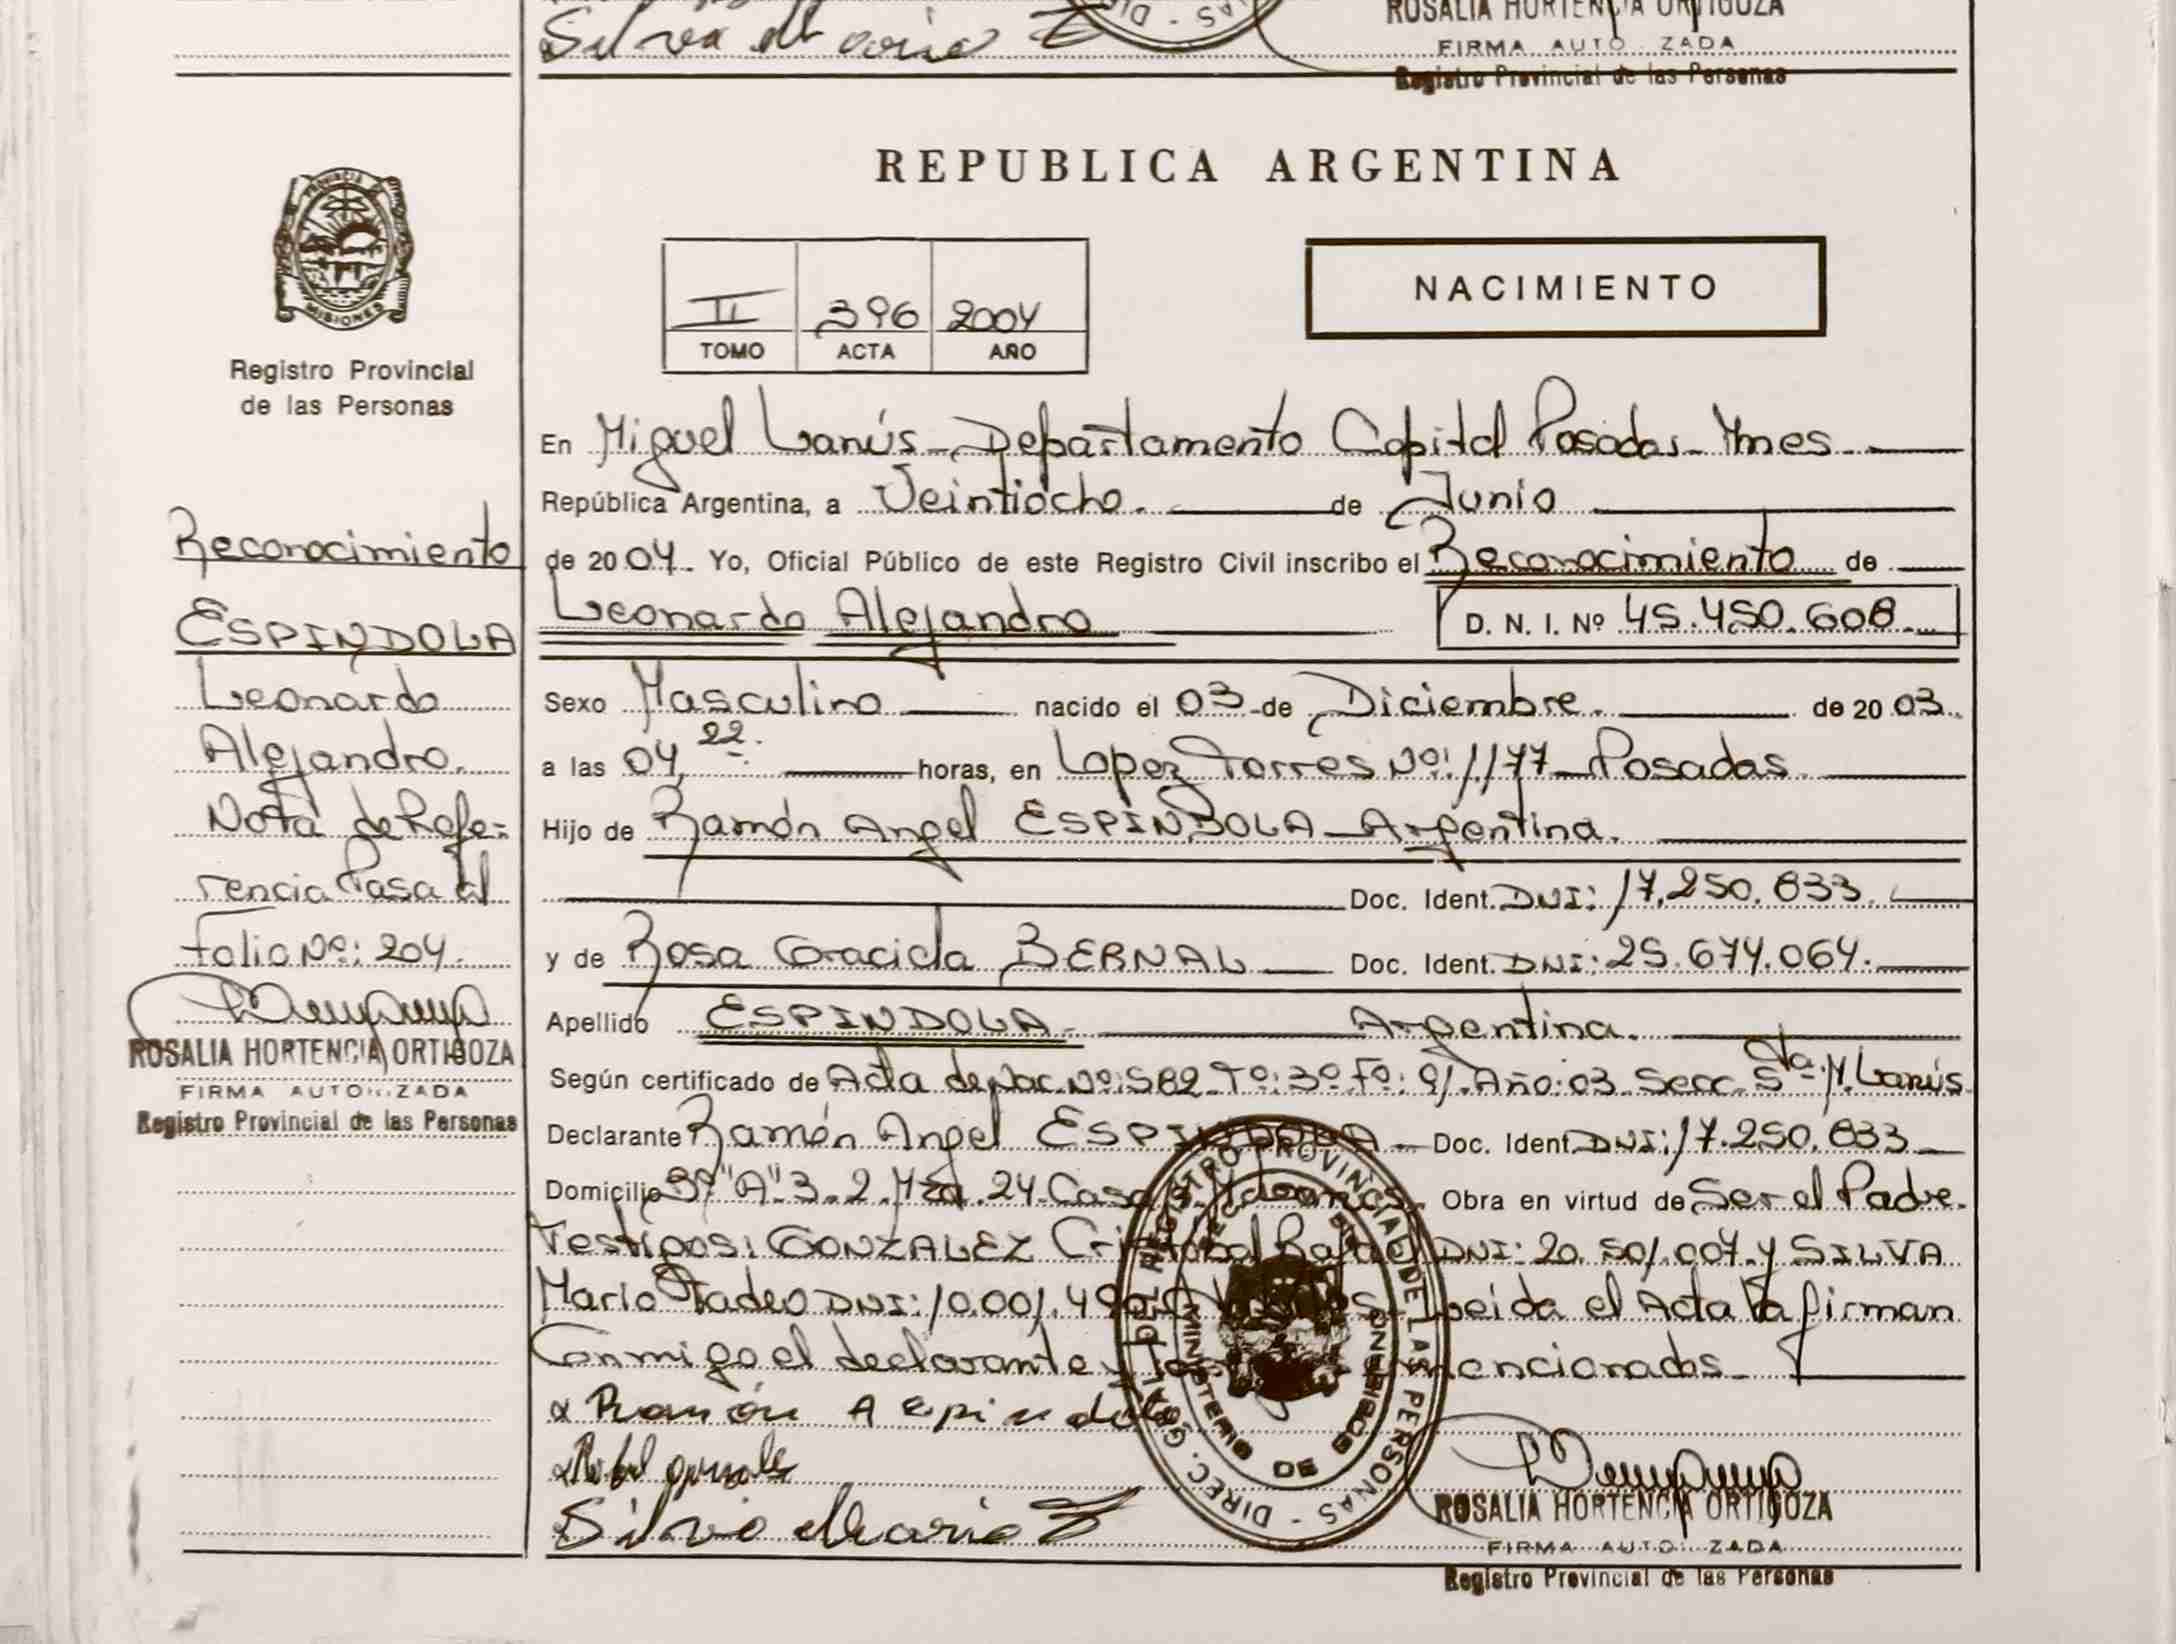 Silva Mario
ROSALIA HORTENCIA ORTIGOZA
FIRMA AUTO ZADA
Registro Provincial de las Personas
REPUBLICA ARGENTINA
PROVINCIA DE
MISIONES
Registro Provincial
de las Personas
II 396 2004
TOMO ACTA AÑO
NACIMIENTO
En Miguel Lanús - Departamento Capital Posadas - Mnes
República Argentina, a Veintiocho. de Junio
de 2004. Yo, Oficial Público de este Registro Civil inscribo el Reconocimiento de
Leonardo Alejandro D. N. I. Nº 45.450.608.
Sexo Masculino nacido el 03 de Diciembre. de 2003.
a las 04,22. horas, en Lopez Torres Nº: 1177 - Posadas.
Hijo de Ramón Angel ESPINDOLA - Argentina.
Doc. Ident. DNI: 17.250.833.
y de Rosa Graciela BERNAL Doc. Ident. DNI: 25.674.064.
Apellido ESPINDOLA - Argentina.
Según certificado de Acta de Nac. Nº: 582 Tº: 3º Fº: 91. Año: 03. Secc. 5ta. M. Lanús.
Declarante Ramón Angel ESPINDOLA - Doc. Ident. DNI: 17.250.833
Domicilio Bº "A" 3. 2. Mza. 24. Casa Obra en virtud de Ser el Padre.
Testigos: GONZALEZ Cristobal Rafael DNI: 20.501.007. y SILVA
Mario Tadeo DNI: 10.001. Leida el Acta la firman
Conmigo el declarante y los mencionados.
Ramón A Epindola
Silva Mario
Reconocimiento
ESPINDOLA
Leonardo
Alejandro.
Nota de Refe-
rencia Pasa al
Folio Nº: 204.
ROSALIA HORTENCIA ORTIGOZA
FIRMA AUTO ZADA
Registro Provincial de las Personas
DIREC. GRAL. DEL REGISTRO PROVINCIAL DE LAS PERSONAS
MINISTERIO DE
ROSALIA HORTENCIA ORTIGOZA
FIRMA AUTO ZADA
Registro Provincial de las Personas